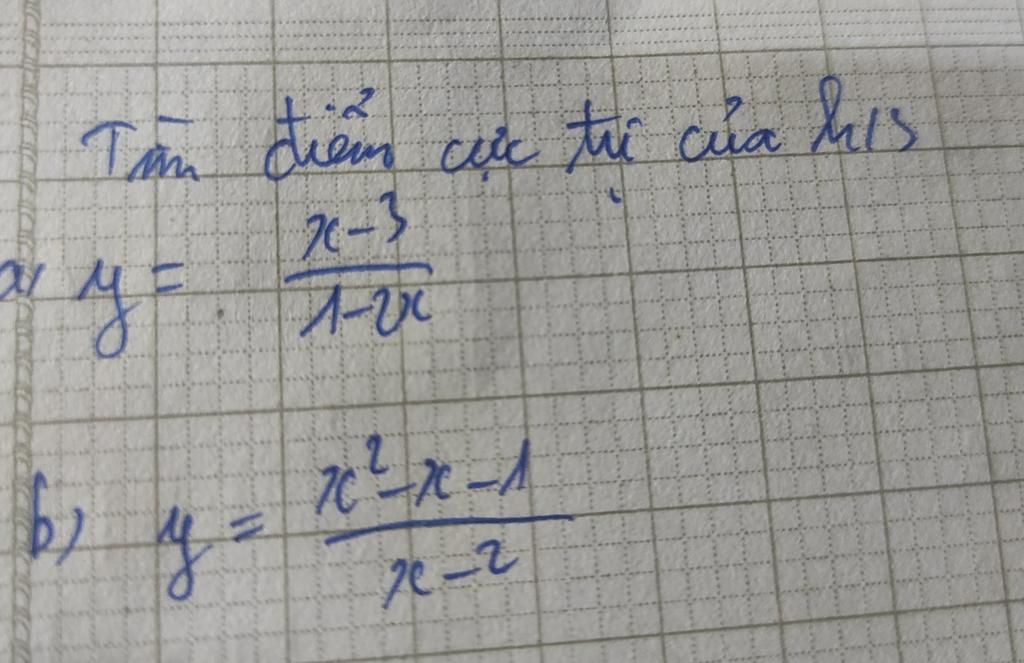 Tìm điểm cực trị của h/s
a, y = \frac{x-3}{1-2x}
b) y = \frac{x^2-x-1}{x-2}